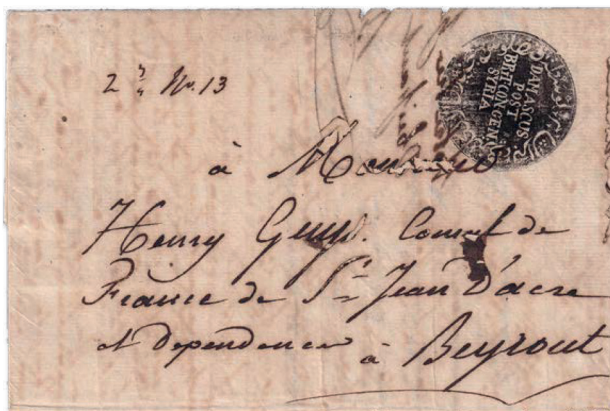 2 No. 13
DAMASCUS.
POST
BRIT CON GEN
SYRIA
à Monsieur
Henry Guys. Consul de
France de St Jean D'acre
et dependences
à Beyrout